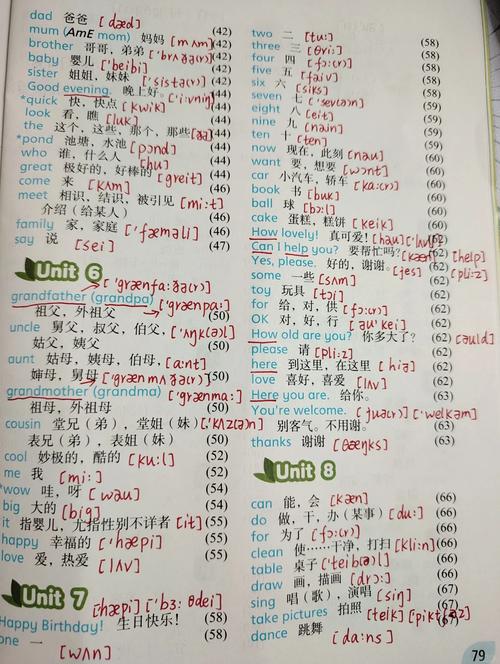 dad 爸爸 [dæd] (42)
mum (AmE mom) 妈妈 [mʌm] (42)
brother 哥哥，弟弟 ['brʌðə(r)] (42)
baby 婴儿 ['beibi] (42)
sister 姐姐，妹妹 ['sistə(r)] (42)
Good evening. 晚上好。 ['i:vniŋ] (44)
*quick 快，快点 [kwik] (44)
look 看，瞧 [luk] (44)
the 这个，这些，那个，那些 [ðə] (44)
*pond 池塘，水池 [pɔnd] (44)
who 谁，什么人 [hu] (44)
great 极好的，好棒的 [greit] (44)
come 来 [kʌm] (46)
meet 相识，结识，被引见 [mi:t]
介绍（给某人） (46)
family 家，家庭 ['fæməli] (46)
say 说 [sei] (47)
Unit 6
['grænfa:ðə(r)]
grandfather (grandpa) ['grænpa:]
祖父，外祖父 (50)
uncle 舅父，叔父，伯父， ['ʌŋk(ə)l]
姑父，姨父 (50)
aunt 姑母，姨母，伯母， [a:nt]
婶母，舅母 ['grænmʌðə(r)] (50)
grandmother (grandma) ['grænma:]
祖母，外祖母 (50)
cousin 堂兄（弟），堂姐（妹） ['kʌz(ə)n]
表兄（弟），表姐（妹） (50)
cool 妙极的，酷的 [ku:l] (52)
me 我 [mi:] (52)
*wow 哇，呀 [wau] (54)
big 大的 [big] (54)
it 指婴儿，尤指性别不详者 [it] (55)
happy 幸福的 ['hæpi] (55)
love 爱，热爱 [lʌv] (55)
Unit 7
[hæpi] ['bɜ:θdei]
Happy Birthday! 生日快乐！ (58)
one 一 [wʌn] (58)
two 二 [tu:]
three 三 [θri:] (58)
four 四 [fɔ:(r)] (58)
five 五 [faiv] (58)
six 六 [siks] (58)
seven 七 ['sev(ə)n] (58)
eight 八 [eit] (58)
nine 九 [nain] (58)
ten 十 [ten] (58)
now 现在，此刻 [nau] (60)
want 要，想要 [wɔnt] (60)
car 小汽车，轿车 [ka:(r)] (60)
book 书 [buk] (60)
ball 球 [bɔ:l] (60)
cake 蛋糕，糕饼 [keik] (60)
How lovely! 真可爱！ [hau]
Can I help you? 要帮忙吗？ [kæn] [help]
Yes, please. 好的，谢谢。 [jes] [pli:z]
some 一些 [sʌm] (62)
toy 玩具 [tɔi] (62)
for 给，对，供 [fɔ:(r)] (62)
OK 对，好，行 [əu'kei] (62)
How old are you? 你多大了？ [əuld] (62)
please 请 [pli:z] (62)
here 到这里，在这里 [hiə] (62)
love 喜好，喜爱 [lʌv] (62)
Here you are. 给你。 (63)
You're welcome. [juə(r)] ['welkəm]
别客气。不用谢。 (63)
thanks 谢谢 [θæŋks] (63)
Unit 8
can 能，会 [kæn] (66)
do 做，干，办（某事） [du:] (66)
for 为了 [fɔ:(r)] (66)
clean 使……干净，打扫 [kli:n] (66)
table 桌子 ['teib(ə)l] (66)
draw 画，描画 [drɔ:] (66)
sing 唱（歌），演唱 [siŋ] (66)
take pictures 拍照 [teik] (67)
dance 跳舞 [da:ns]
79